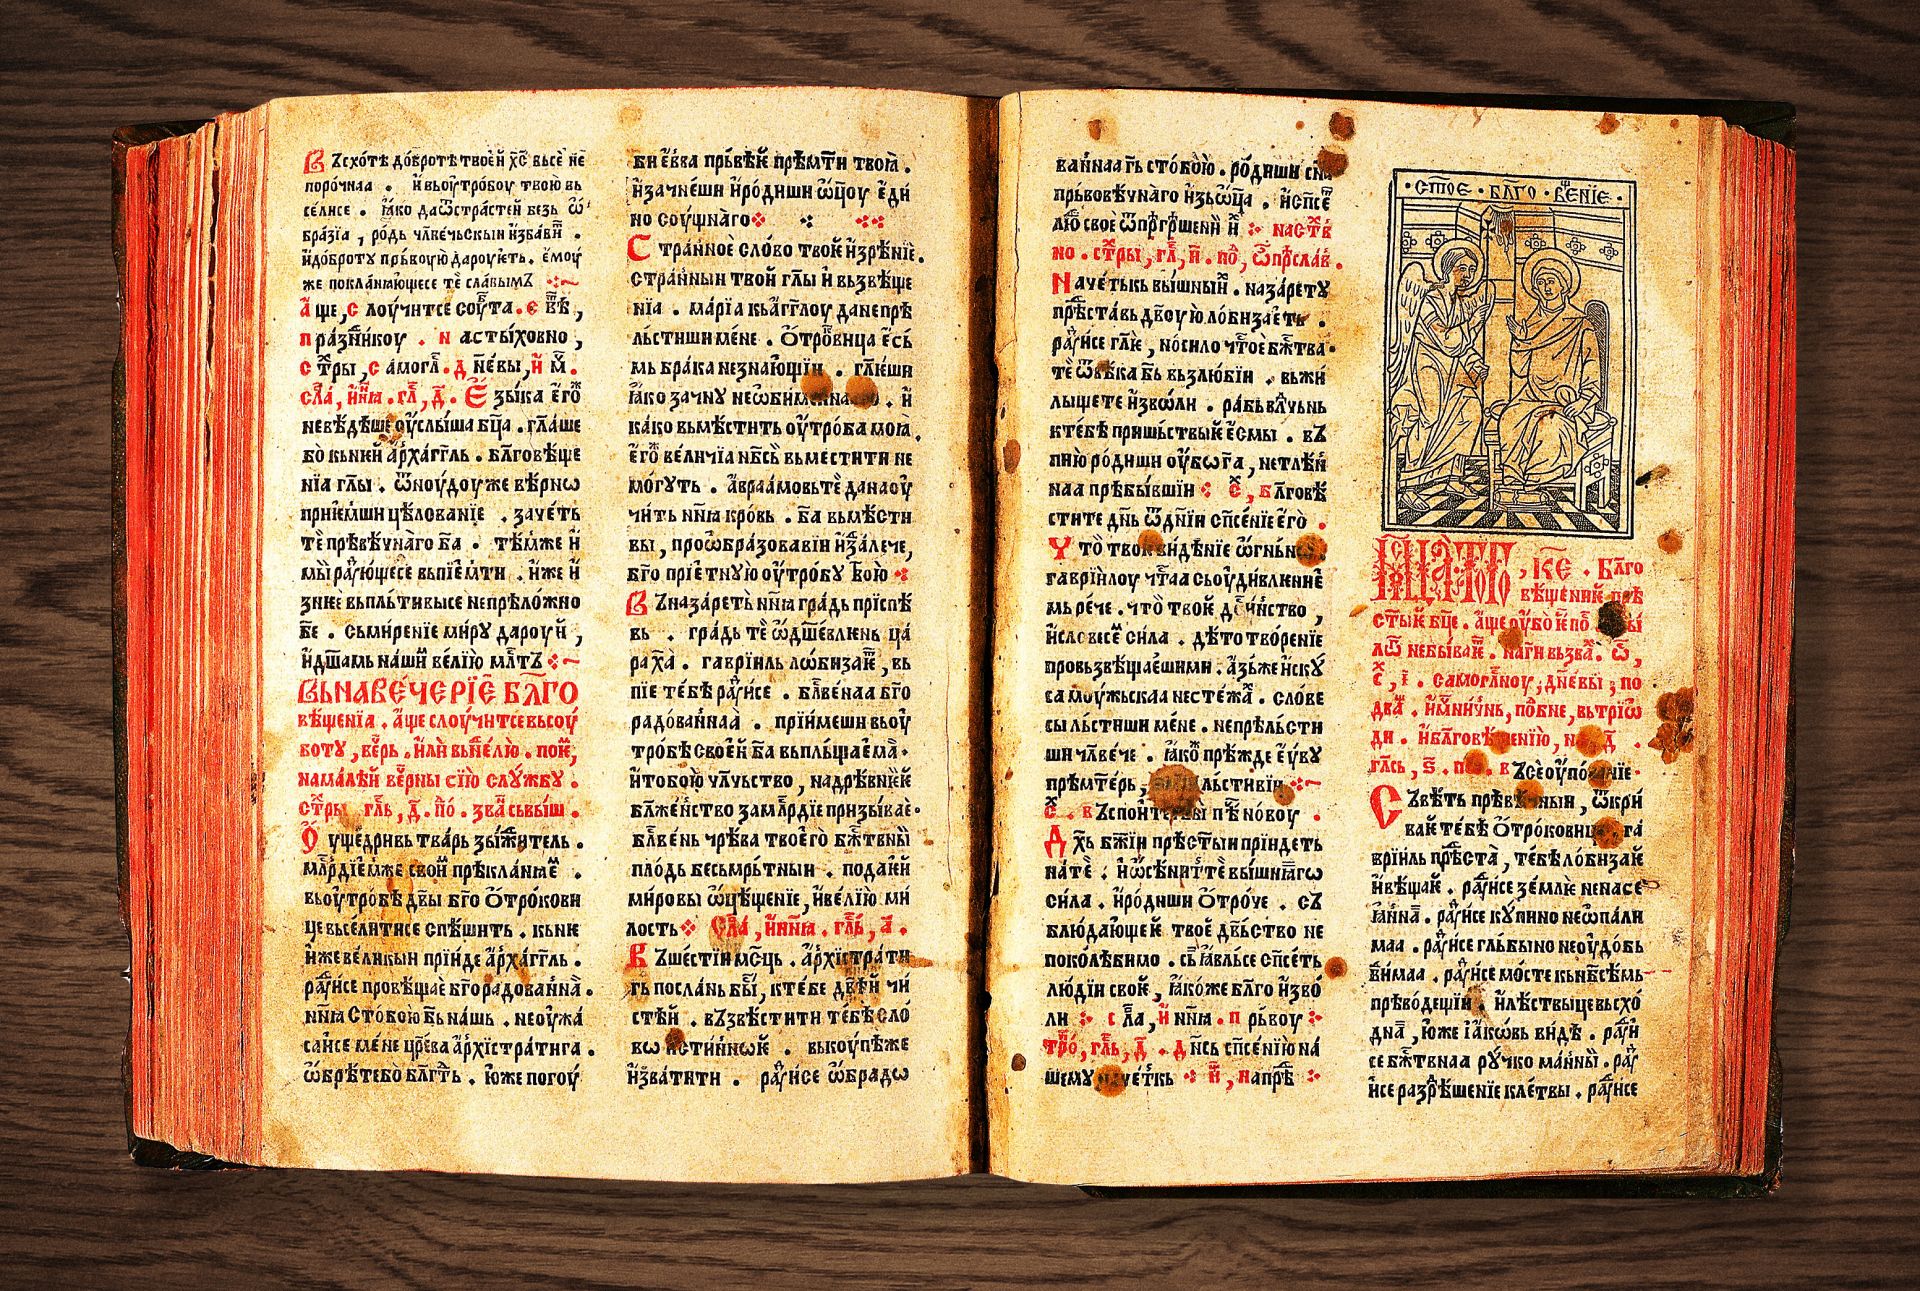 Въсхоте доброте твоеи х҃с вьсе не
порочнаа . и вьоутробоу твою вь
селисе . ꙗко да ѿ страстей безь ѡ
бразїа , рѡдь чл҃вечьскыи избави .
и доброту прьвоую дароуѥть . ѥмоу
же покланꙗющесе те славымъ
Аще , слоучитсе соуⷠта . є вѣ ,
празⷣникоу . и на стыховно ,
стⷯры , самоглⷭ . д҃ невы , и
сла , и ниꙗ . гл , д҃ . Єзыка ѥго
невѣдѣше оуслыша бц҃а . гл҃аше
бо кь ниѥй арⷯхагг҃ль . бл҃говѣще
нїа гл҃ы . ѿноудоу же вѣрнѡ
приѥмши цѣлованїе . зачеть
те прѣвѣчнаго б҃а . тѣмже и
мы раⷣꙋющесе вьпїем ти . иже и
з ниѥ вьпльтивысе непрѣложно
б҃е . сьмиренїе мирꙋ дароуй ,
и дш҃амь нашиⷨ велїю млⷭтъ
Вь навечерїѥ бл҃го
вѣщенїа . аще слоучитсе вьсоу
боту , веⷱрь . или вь неⷣлю . поⷨ ,
на малѣй веⷱрны сїю слꙋжбу .
стⷯры , гль , д҃ . поⷣ . званⷩ сьвыш .
Оущедривь тварь зыⷣжитель .
млⷭрдїеⷨ же своиⷨ прѣкланꙗеⷨ
вь оутробѣ дв҃ы бг҃о отрокови
це вьселитисе спѣшить . кь ниѥ
иже великыи прїиде арⷯхагг҃ль .
раⷣꙋисе провѣщаѥ бг҃орадованнаꙗ .
нин҃ꙗ с тобою б҃ь нашь . не оужа
саисе мене цр҃ева арⷯхїстратига .
ѡбрѣте бо бл҃гⷣть . юже погоу
би еⷡвва прьвѣѥ прѣм҃ти твоꙗ .
и зачнеши и родиши ѡц҃оу ѥди
но соущнаго
Странноѥ слово твоѥ изрѣнїе .
странныи твой гл҃ы и вьзвѣще
нїа . марїа кь агг҃лоу да не прѣ
льстиши мене . отроⷦвица ѥсь
мь брака незнающїи . гл҃ѥши
ꙗко зачну неѡбименнаго . и
како вьмѣстить оутроба моꙗ .
ѥгоⷤ величїа нб҃сь вьместити не
могуть . авраамовь те да наоу
чить нин҃ꙗ кровь . б҃а вьмѣсти
вы , проѡбразовавїи издалече ,
бг҃о прїетную оутробу твою
Въ назареть нин҃ꙗ градь прїспѣ
вь . градь те ѡдш҃евлѥнь ца
ра х҃а . гаврїиль лобизаѥⷮ , вь
пїе тебѣ раⷣꙋисе . бл҃венаа бг҃о
радованнаа . прїимеши вь оу
тробѣ своѥй б҃а вьпльщаема .
и тобою чл҃чьство , на дрѣвнѥѥ
блаженство за млⷭрдїе призываѥ .
бл҃вень чрѣва твоѥго бжⷭтвны
плодь бесьмрьтныи . подаѥй
мирови ѡцѣщенїе , и велїю ми
лость Сла , и нин҃ꙗ . гль , а҃ .
Въ шестїи мсц҃ь . арⷯхїстрати
гь посланьбы , к тебе дв҃ѣй чи
стѣй . възвѣстити тебѣ сло
во истинноѥ . выкоупѣже
извѣтити . раⷣꙋисе ѡбрадѡ
ваннаа г҃ь с тобою . родиши сн҃а
прьвовѣчнаго изь ѡц҃а . и спⷭсе
люⷣ своѥ ѿ прⷣгрѣшенїй и на стⷯв
но . стⷯры , гл , и҃ . поⷣ , ѿ пⷬславⷩ .
На четькь вышныйⷯ . назарету
прѣⷣставь дв҃оу ю лобизаѥть .
раⷣꙋисе гл҃ѥ , носило чтⷭоѥ бжⷭтва .
те ѿ вѣка б҃ь вьзлюбїи . вь жи
лыщете изволи . рабь влⷣчьнь
к тебѣ пришьствыѥ ѥсмы . въ
пию родиши оубо г҃а , нетлѣн
наа прѣбывшїи с҃ , благовѣ
стите дн҃ь ѿ дн҃їи сп҃сенїе ѥго .
Что твоѥ видѣнїе ѡгньно
гаврїилоу чⷭтаа сь оудивлѥниѥ
мь рече . что твоѥ достоинство ,
и словесеⷨ сила . дѣтотворенїе
провьзвѣщаѥши ми . азь же искꙋ
са моужьскаа нестежаⷯ . слове
сы льстиши мене . непрѣльсти
ши чл҃вече . ꙗкоⷤ прѣжде ѥуву
прѣм҃терь , змїи льстивїи
с҃ . въспоите г҃вы пѣⷭ новоу .
Дх҃ь бж҃їи прѣстыи прїидеть
на те . и ѡсѣнит те вышнꙗго
сила . и родиши отроче . съ
блюдающеѥ твоѥ двь҃ство не
поколѣбимо . сь ꙗвльсе сп҃сеть
людїи своѥ , ꙗкоже бл҃го изво
ли сл҃а , и нин҃ꙗ . прьвоу
троⷫ , гль , д҃ . дн҃сь сп҃сенїю на
шему начеткь и҃ , напрѣ
· ст҃ое · бл҃го · вѣщенїе ·
М҃ца . тогоⷤ , к҃е . Бл҃го
вѣщениѥ прѣ
стыѥ бц҃е . аще оубо ѥ поⷭ
лѡⷩ не бываѥⷮ . на г҃и вьзваⷯ . ѿ ,
с҃ , і҃ . самоглⷭноу , дневы , по
дваⷤ . и миниинь , поⷣбне , вь трїѡ
ди . и благовѣщенїю , на д҃ .
гл҃сь , ѕ҃ . поⷣ . въсе оупованїе .
Съвѣть прѣвѣчныи , ѿкри
ваѥ тебѣ отроковице . га
врїиль прѣⷣста , тебѣ лобизаѥ
и вѣщаѥ . раⷣꙋисе землѥ ненасе
ꙗннаа . раⷣꙋисе купино неѡпали
маа . раⷣꙋисе гльбыно неоудобь
вⷤимаа . раⷣꙋисе мосте кь нб҃семь
прѣводещїи . и лѣствыце высхо
днаа , юже їꙗковь видѣ . раⷣꙋи
се бжⷭтвнаа рꙋчко манны . раⷣꙋ
исе разⷣрѣшенїе клетвы . раⷣꙋисе